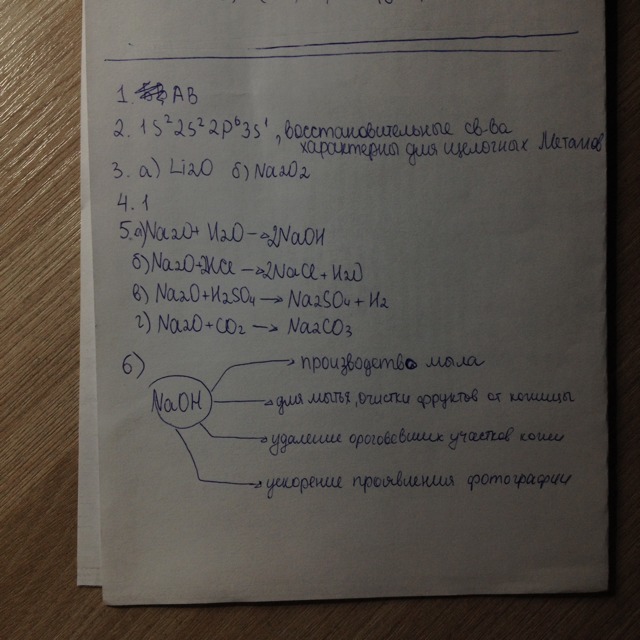 1. АВ
2. 1S²2S²2P⁶3S¹, восстановительные св-ва
характерны для щелочных Металлов
3. а) Li2O б) Na2O2
4. 1
5. а) Na2O + H2O → 2NaOH
б) Na2O + 2HCl → 2NaCl + H2O
в) Na2O + H2SO4 → Na2SO4 + H2
г) Na2O + CO2 → Na2CO3
6)
NaOH
производство мыла
для мытья, очистки фруктов от кожицы
удаление ороговевших участков кожи
ускорение проявления фотографии